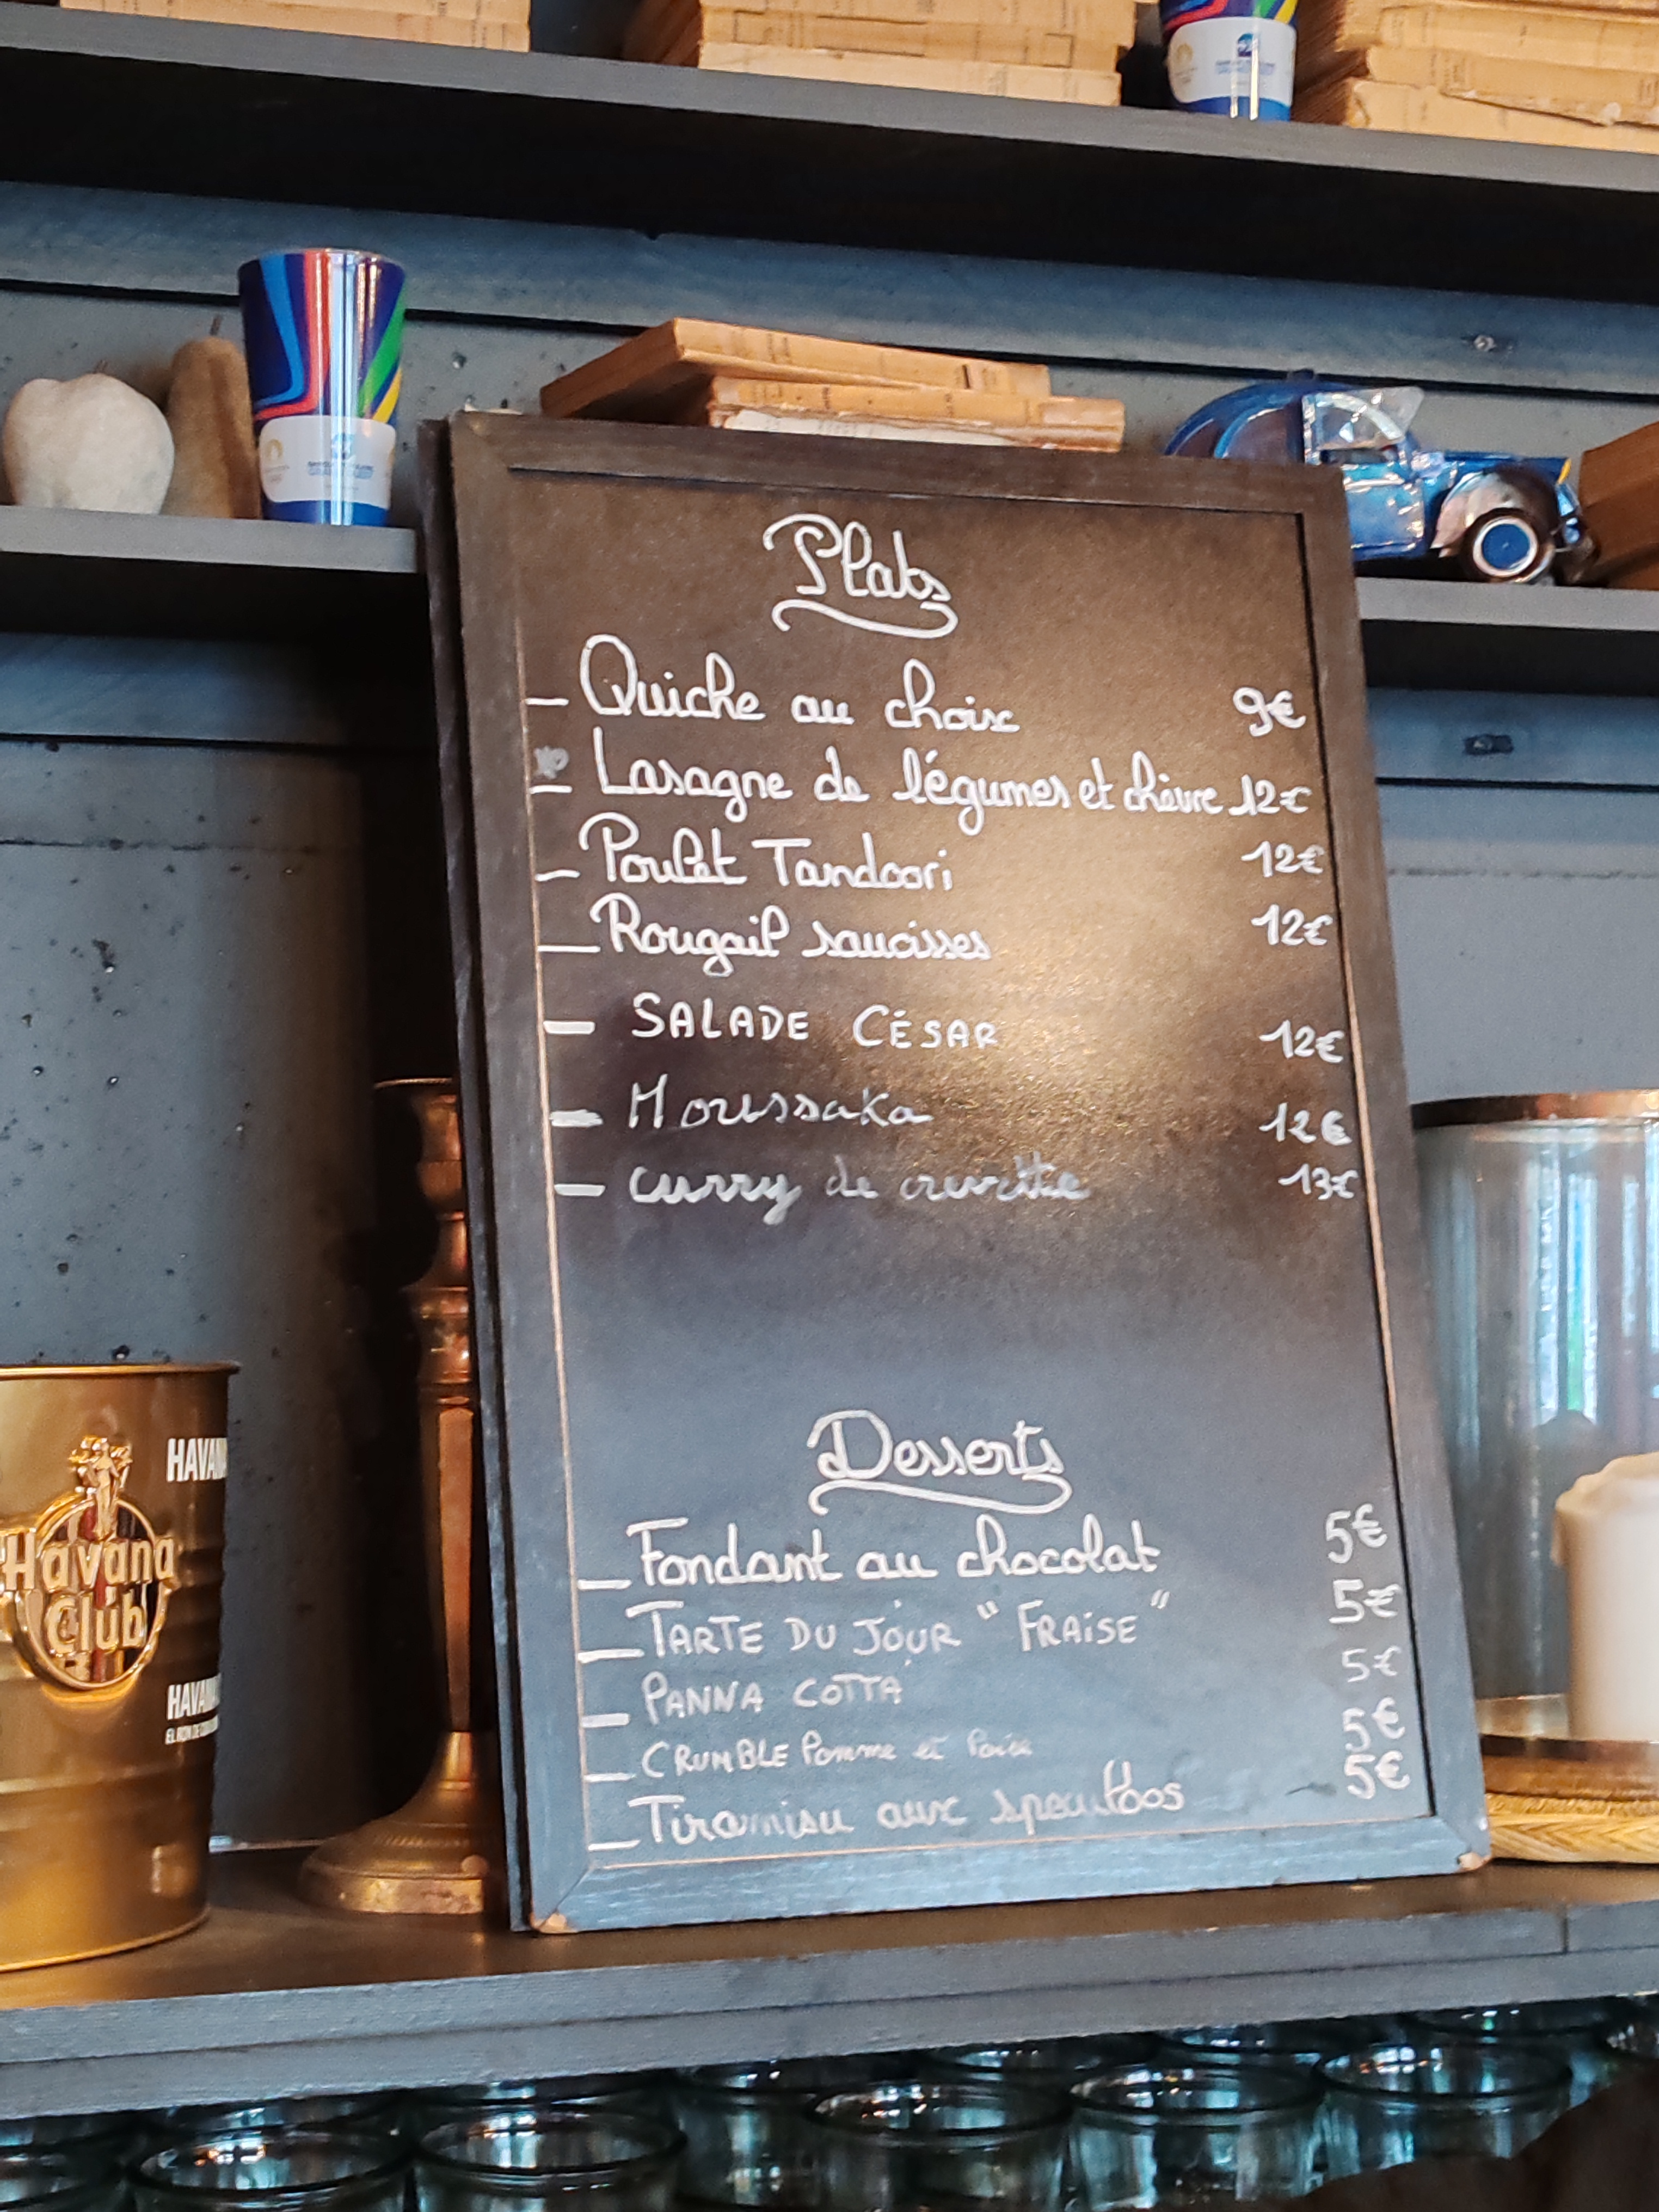 Plats
— Quiche au choix 9€
— Lasagne de légumes et chèvre 12€
— Poulet Tandoori 12€
— Rougail saucisses 12€
— SALADE CÉSAR 12€
— Moussaka 12€
— curry de crevette 13€
Desserts
— Fondant au chocolat 5€
— TARTE DU JOUR " FRAISE " 5€
— PANNA COTTA 5€
— CRUMBLE Pomme et Poire 5€
— Tiramisu aux speculoos 5€
Havana
Club
HAVANA
HAVANA